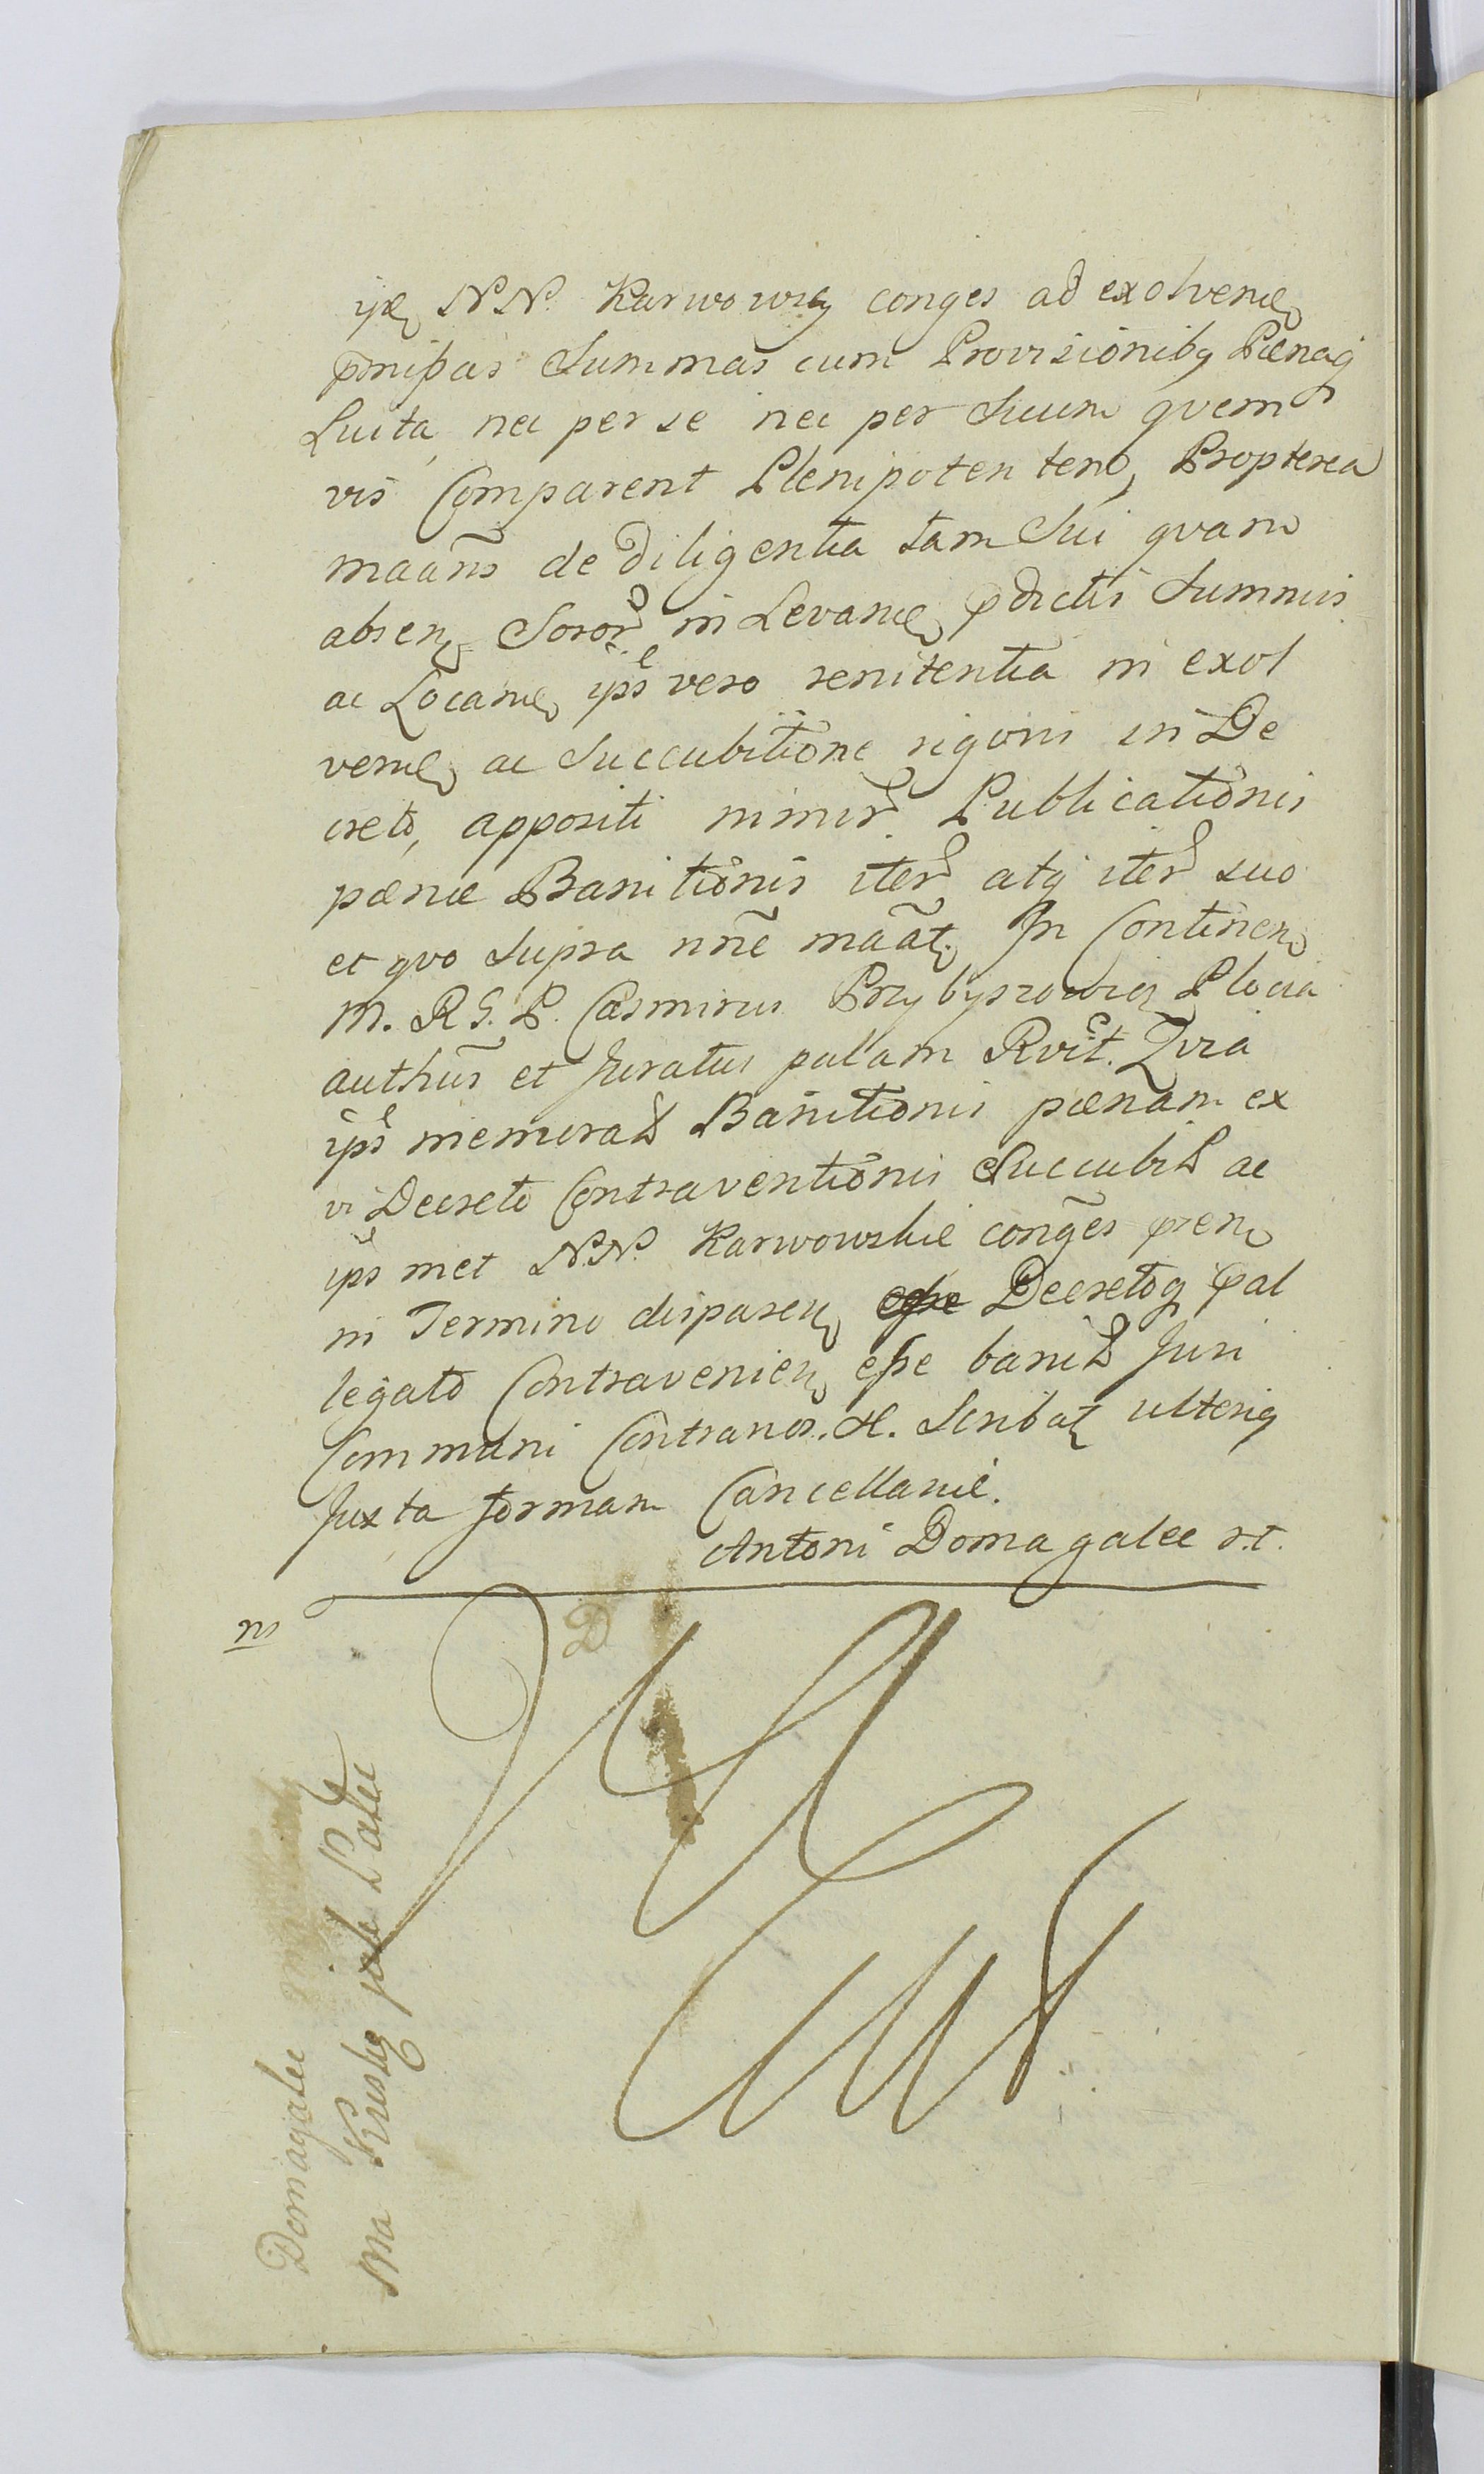 ipē NN. Karwowscy conges ad exolvend
pnipas Summas cum Provisionibq Pænaq
Luita, nec per se nec per Suum qvem
vis Comparent Plenipotentem, Propterea
maāns de diligentia tam Sui qvam
absen Soror in Levand pdictis Summis
ac Locand ips vero renitentia in exol
vend ac Succubitione rigoris in De
creto, appositi nimir. Publicationis
pænæ Banitionis iter atq iter suo
et qvo Supra nñe maāt. In Continen
M. R G. P. Casmirus Przybyszowicz Plocia
authūs et Juratus palam Rvit. Qvia
ips memorat Banitionis pænam ex
vi Decreto Contraventionis Succubit ac
ips met NN. Karwowskie conges pren
in Termino disparen Decretoq pal
legato Contravenien esse banit Juri
Communi Contranor. H. Scribat ulteriq
Juxta formam Cancellariæ.
Antoni Domagalec st.
ns
D
Domagalec
Ma Kriskq